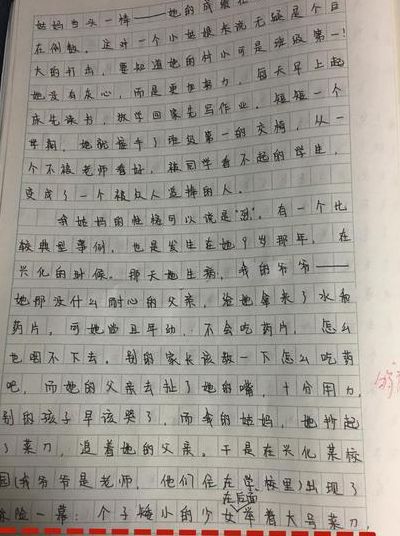 姑妈当头一棒——她的成绩在
在倒数，这对一个小姑娘来说无疑是个巨
大的打击，要知道她在村小可是班级第一！
她没有灰心，而是更加努力，每天早上起
床先读书，放学回家先写作业，短短一个
学期，她就坐上了班级第一的交椅，从一
个不被老师看好，被同学看不起的学生，
变成了一个被众人追捧的人。
我姑妈的性格可以说是"烈"。有一个比
较典型事例，也是发生在她9岁那年，在
兴化的时候。那天她生病，我的爷爷——
她那没什么耐心的父亲，给她拿来了水和
药片，可她当年幼，不会吃药片，怎么
也咽不下去，别的家长该教一下怎么吃药
吧，而她的父亲去扯了她的嘴，十分用力，
别的孩子早该哭了，而我的姑妈，她抄起
了菜刀，追着她的父亲。于是在兴化某校
园(我爷爷是老师，他们住在学校里)出现了
惊险一幕：个子矮小的少女举着大号菜刀，
在后面